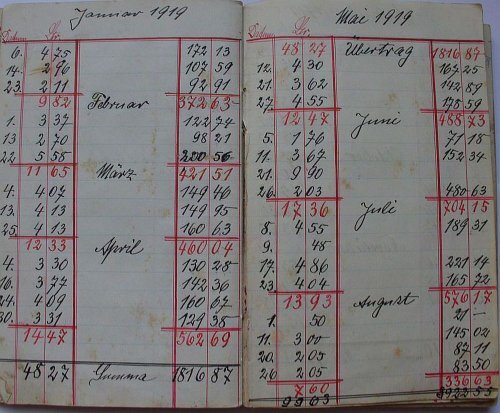 Januar 1919
Datum
6. 4 75 172 13
14. 2 96 107 59
23. 2 11 92 91
9 82 Februar 372 63
1. 3 37 122 74
13. 2 70 98 21
22. 5 58 200 56
11 65 März 421 51
4. 4 07 149 46
13. 4 13 149 95
25. 4 13 160 63
12 33 April 460 04
4. 3 30 130 28
16. 3 77 142 36
24. 4 09 160 67
30. 3 31 129 38
14 47 562 69
48 27 Summa 1816 87
Mai 1919
48 27 Übertrag 1816 87
12. 4 30 167 25
21. 3 62 142 89
27. 4 55 178 59
12 47 Juni 488 73
5. 1 76 71 18
11. 3 67 152 34
21. 9 90
26. 2 03 480 63
17 36 Juli 704 15
8. 4 55 189 31
9. 48
17. 4 86 221 14
23. 4 04 165 72
13 93 August 576 17
1. 50 21 —
11. 3 00 145 02
20. 2 05 87 11
26. 2 05 83 50
7 60 336 63
99 63 3922 55